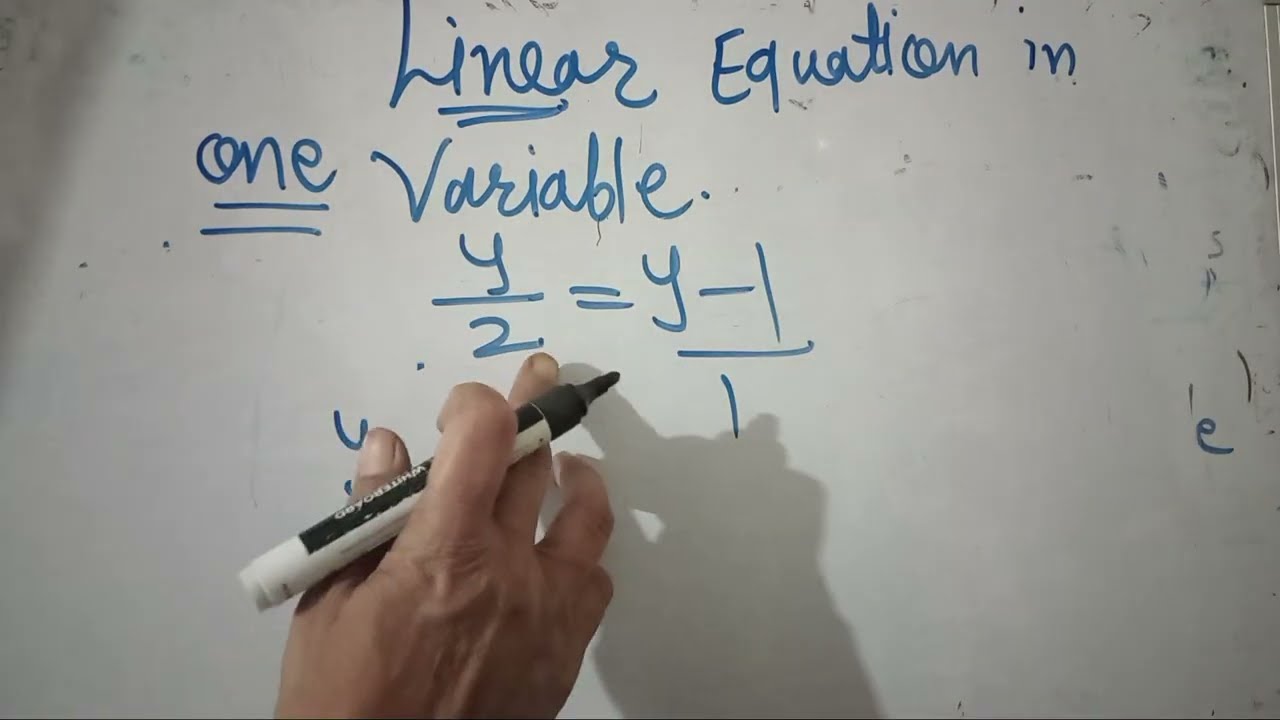 Linear Equation in
one Variable.
y/2 = y-1/1
y
e
WHITEBOARD